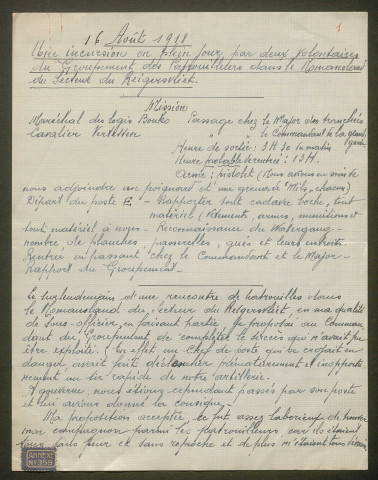 1
16 Août 1918
Une incursion en plein jour par deux volontaires
du Groupement des Patrouilleurs dans le Nomansland
du Secteur du Reigersvliet.
Mission
Maréchal des logis Bouko Passage chez le Major des tranchées
Cavalier Vertessen " " le Commandant de la grand'
garde
Heure de sortie: 3 H 30 du matin
Heure probable de rentrée: 13 H.
Armé: pistolet (Nous avions eu soin de
nous adjoindre un poignard et une grenade Mils, chacun)
Départ du poste E. - Rapporter tout cadavre boche, tout
matériel (vêtements, armes, munitions et
tout matériel à nous - Reconnaissance du Watergang -
nombre de planches, passerelles, gués et leurs endroits.
Rentrer en passant chez le Commandant et le Major -
Rapport du Groupement.
Le surlendemain d'une rencontre de patrouilles dans
le Nomansland du secteur du Reigersvliet, en ma qualité
de Sous-officier, en faisant partie, je proposai au Comman
dant du Groupement de compléter le succès qui n'avait pu
être exploité. (En effet un Chef de poste qui se croyait en
danger avait fait déclencher prématurément et inopportu
nément un tir rapide de notre artillerie.
nous étions cependant passés par son poste
et lui avions donné la consigne.-
Ma proposition acceptée, ce fut assez laborieux de trouver
mon compagnon parmi les patrouilleurs car ils étaient
tous sans peur et sans reproche et de plus m'étaient tous
ANNEXE
N° 359